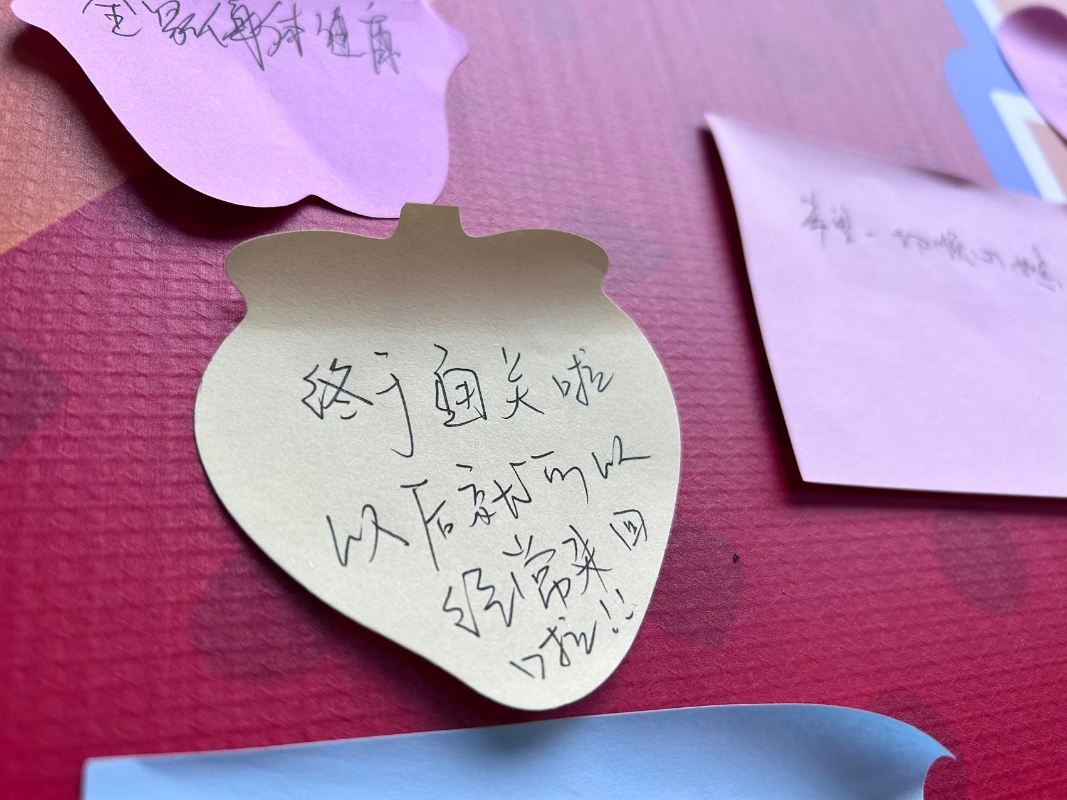 全家人身体健康
终于通关啦
以后就可以
经常来回
啦!!
希望一切顺